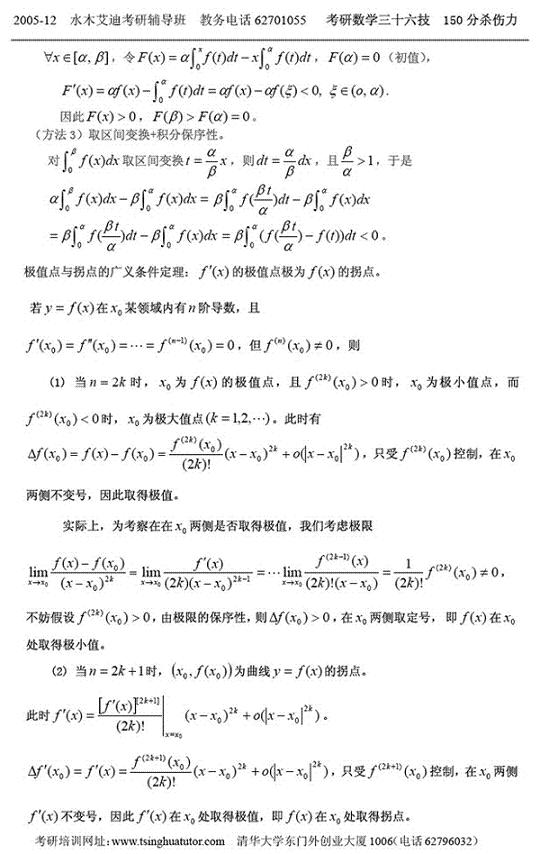 2005-12 水木艾迪考研辅导班 教务电话 62701055 考研数学三十六技 150 分杀伤力
∀x∈[α, β]，令 F(x) = α∫₀ˣ f(t)dt − x∫₀^α f(t)dt，F(α) = 0（初值），
F′(x) = αf(x) − ∫₀^α f(t)dt = αf(x) − αf(ξ) < 0, ξ∈(o, α).
因此 F(x) > 0，F(β) > F(α) = 0。
（方法 3）取区间变换+积分保序性。
对∫₀^β f(x)dx 取区间变换 t = α/β x，则 dt = α/β dx，且 β/α > 1，于是
α∫₀^β f(x)dx − β∫₀^α f(x)dx = β∫₀^α f(βt/α)dt − β∫₀^α f(x)dx
= β∫₀^α f(βt/α)dt − β∫₀^α f(x)dx = β∫₀^α (f(βt/α) − f(t))dt < 0。
极值点与拐点的广义条件定理：f′(x) 的极值点极为 f(x) 的拐点。
若 y = f(x) 在 x₀ 某领域内有 n 阶导数，且
f′(x₀) = f″(x₀) = ⋯ = f⁽ⁿ⁻¹⁾(x₀) = 0，但 f⁽ⁿ⁾(x₀) ≠ 0，则
(1) 当 n = 2k 时，x₀ 为 f(x) 的极值点，且 f^(2k)(x₀) > 0 时，x₀ 为极小值点，而
f^(2k)(x₀) < 0 时，x₀ 为极大值点 (k = 1,2,⋯)。此时有
Δf(x₀) = f(x) − f(x₀) = f^(2k)(x₀)/(2k)! (x − x₀)^2k + o(|x − x₀|^2k)，只受 f^(2k)(x₀) 控制，在 x₀
两侧不变号，因此取得极值。
实际上，为考察在在 x₀ 两侧是否取得极值，我们考虑极限
lim x→x₀ (f(x) − f(x₀))/(x − x₀)^2k = lim x→x₀ f′(x)/((2k)(x − x₀)^2k−1) = ⋯ lim x→x₀ f^(2k−1)(x)/((2k)!(x − x₀)) = 1/(2k)! f^(2k)(x₀) ≠ 0，
不妨假设 f^(2k)(x₀) > 0，由极限的保序性，则 Δf(x₀) > 0，在 x₀ 两侧取定号，即 f(x) 在 x₀
处取得极小值。
(2) 当 n = 2k + 1 时，(x₀, f(x₀)) 为曲线 y = f(x) 的拐点。
此时 f′(x) = [f′(x)]^[2k+1]/(2k)! |x=x₀ (x − x₀)^2k + o(|x − x₀|^2k)。
Δf′(x₀) = f′(x) = f^(2k+1)(x₀)/(2k)! (x − x₀)^2k + o(|x − x₀|^2k)，只受 f^(2k+1)(x₀) 控制，在 x₀ 两侧
f′(x) 不变号，因此 f′(x) 在 x₀ 处取得极值，即 f(x) 在 x₀ 处取得拐点。
考研培训网址：www.tsinghuatutor.com 清华大学东门外创业大厦 1006（电话 62796032）